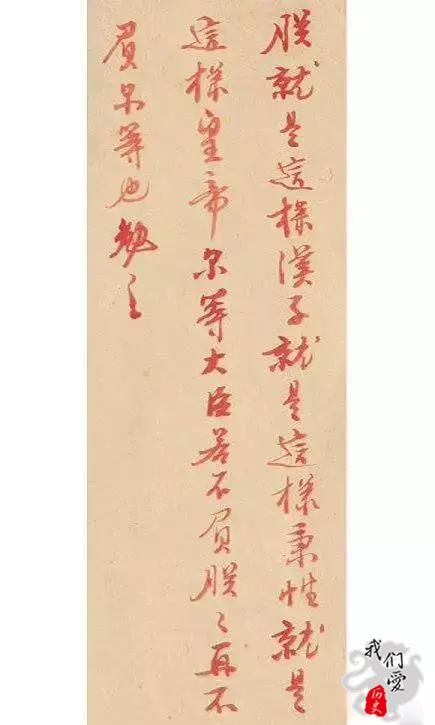 朕就是這樣漢子就是這樣秉性就是
這樣皇帝尔等大臣若不負朕〻再不
負尔等也勉之
我们愛
历史